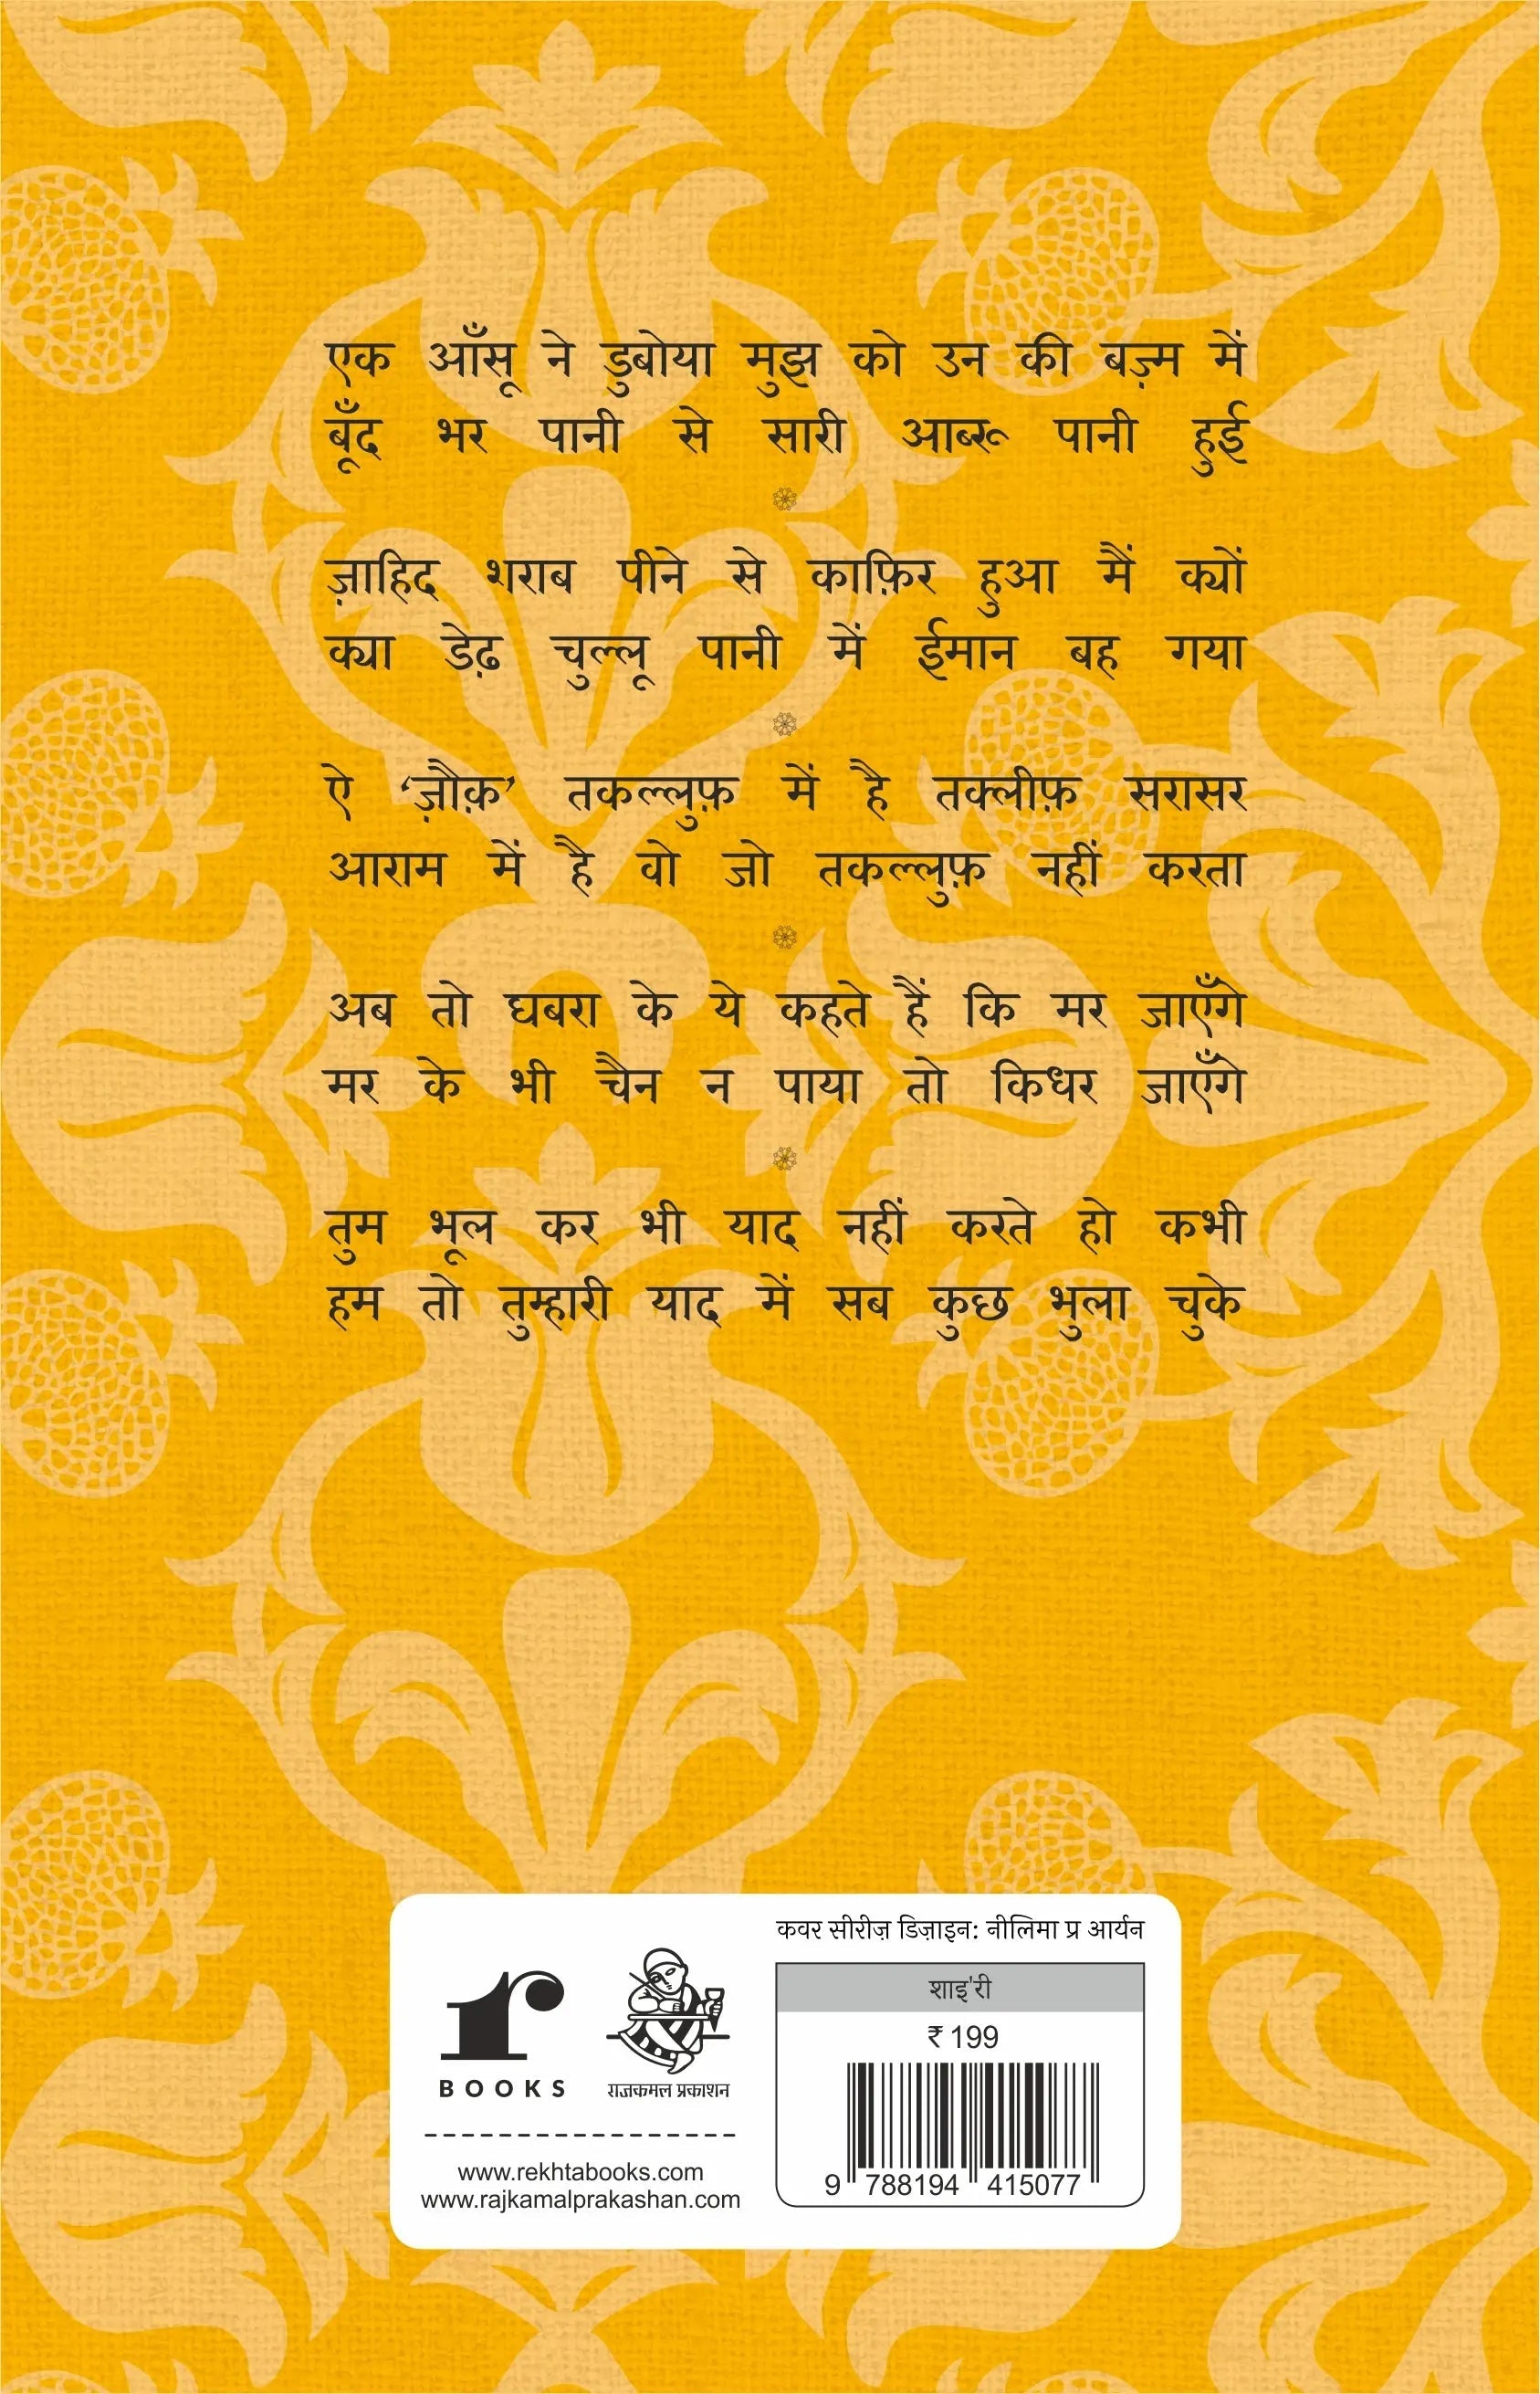 एक आँसू ने डुबोया मुझ को उन की बज़्म में
बूँद भर पानी से सारी आब्रू पानी हुई
ज़ाहिद शराब पीने से काफ़िर हुआ मैं क्यों
क्या डेढ़ चुल्लू पानी में ईमान बह गया
ऐ ‘ज़ौक़’ तकल्लुफ़ में है तक्लीफ़ सरासर
आराम में है वो जो तकल्लुफ़ नहीं करता
अब तो घबरा के ये कहते हैं कि मर जाएँगे
मर के भी चैन न पाया तो किधर जाएँगे
तुम भूल कर भी याद नहीं करते हो कभी
हम तो तुम्हारी याद में सब कुछ भुला चुके
कवर सीरीज़ डिज़ाइन: नीलिमा प्र आर्यन
शाइ'री
₹ 199
9 788194 415077
r
BOOKS
राजकमल प्रकाशन
www.rekhtabooks.com
www.rajkamalprakashan.com